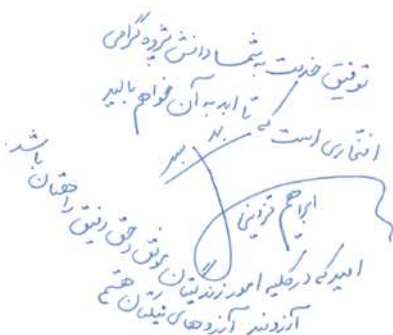 توفیق خدمت به شما دانش پژوه گرامی
افتخاری است که تا ابد به آن خواهم بالید
ابراهیم قزوینی
امید که در کلیه امور زندگیتان موفق و حق رفیق راهتان باشد
آرزومند آرزوهای نیکتان هستم